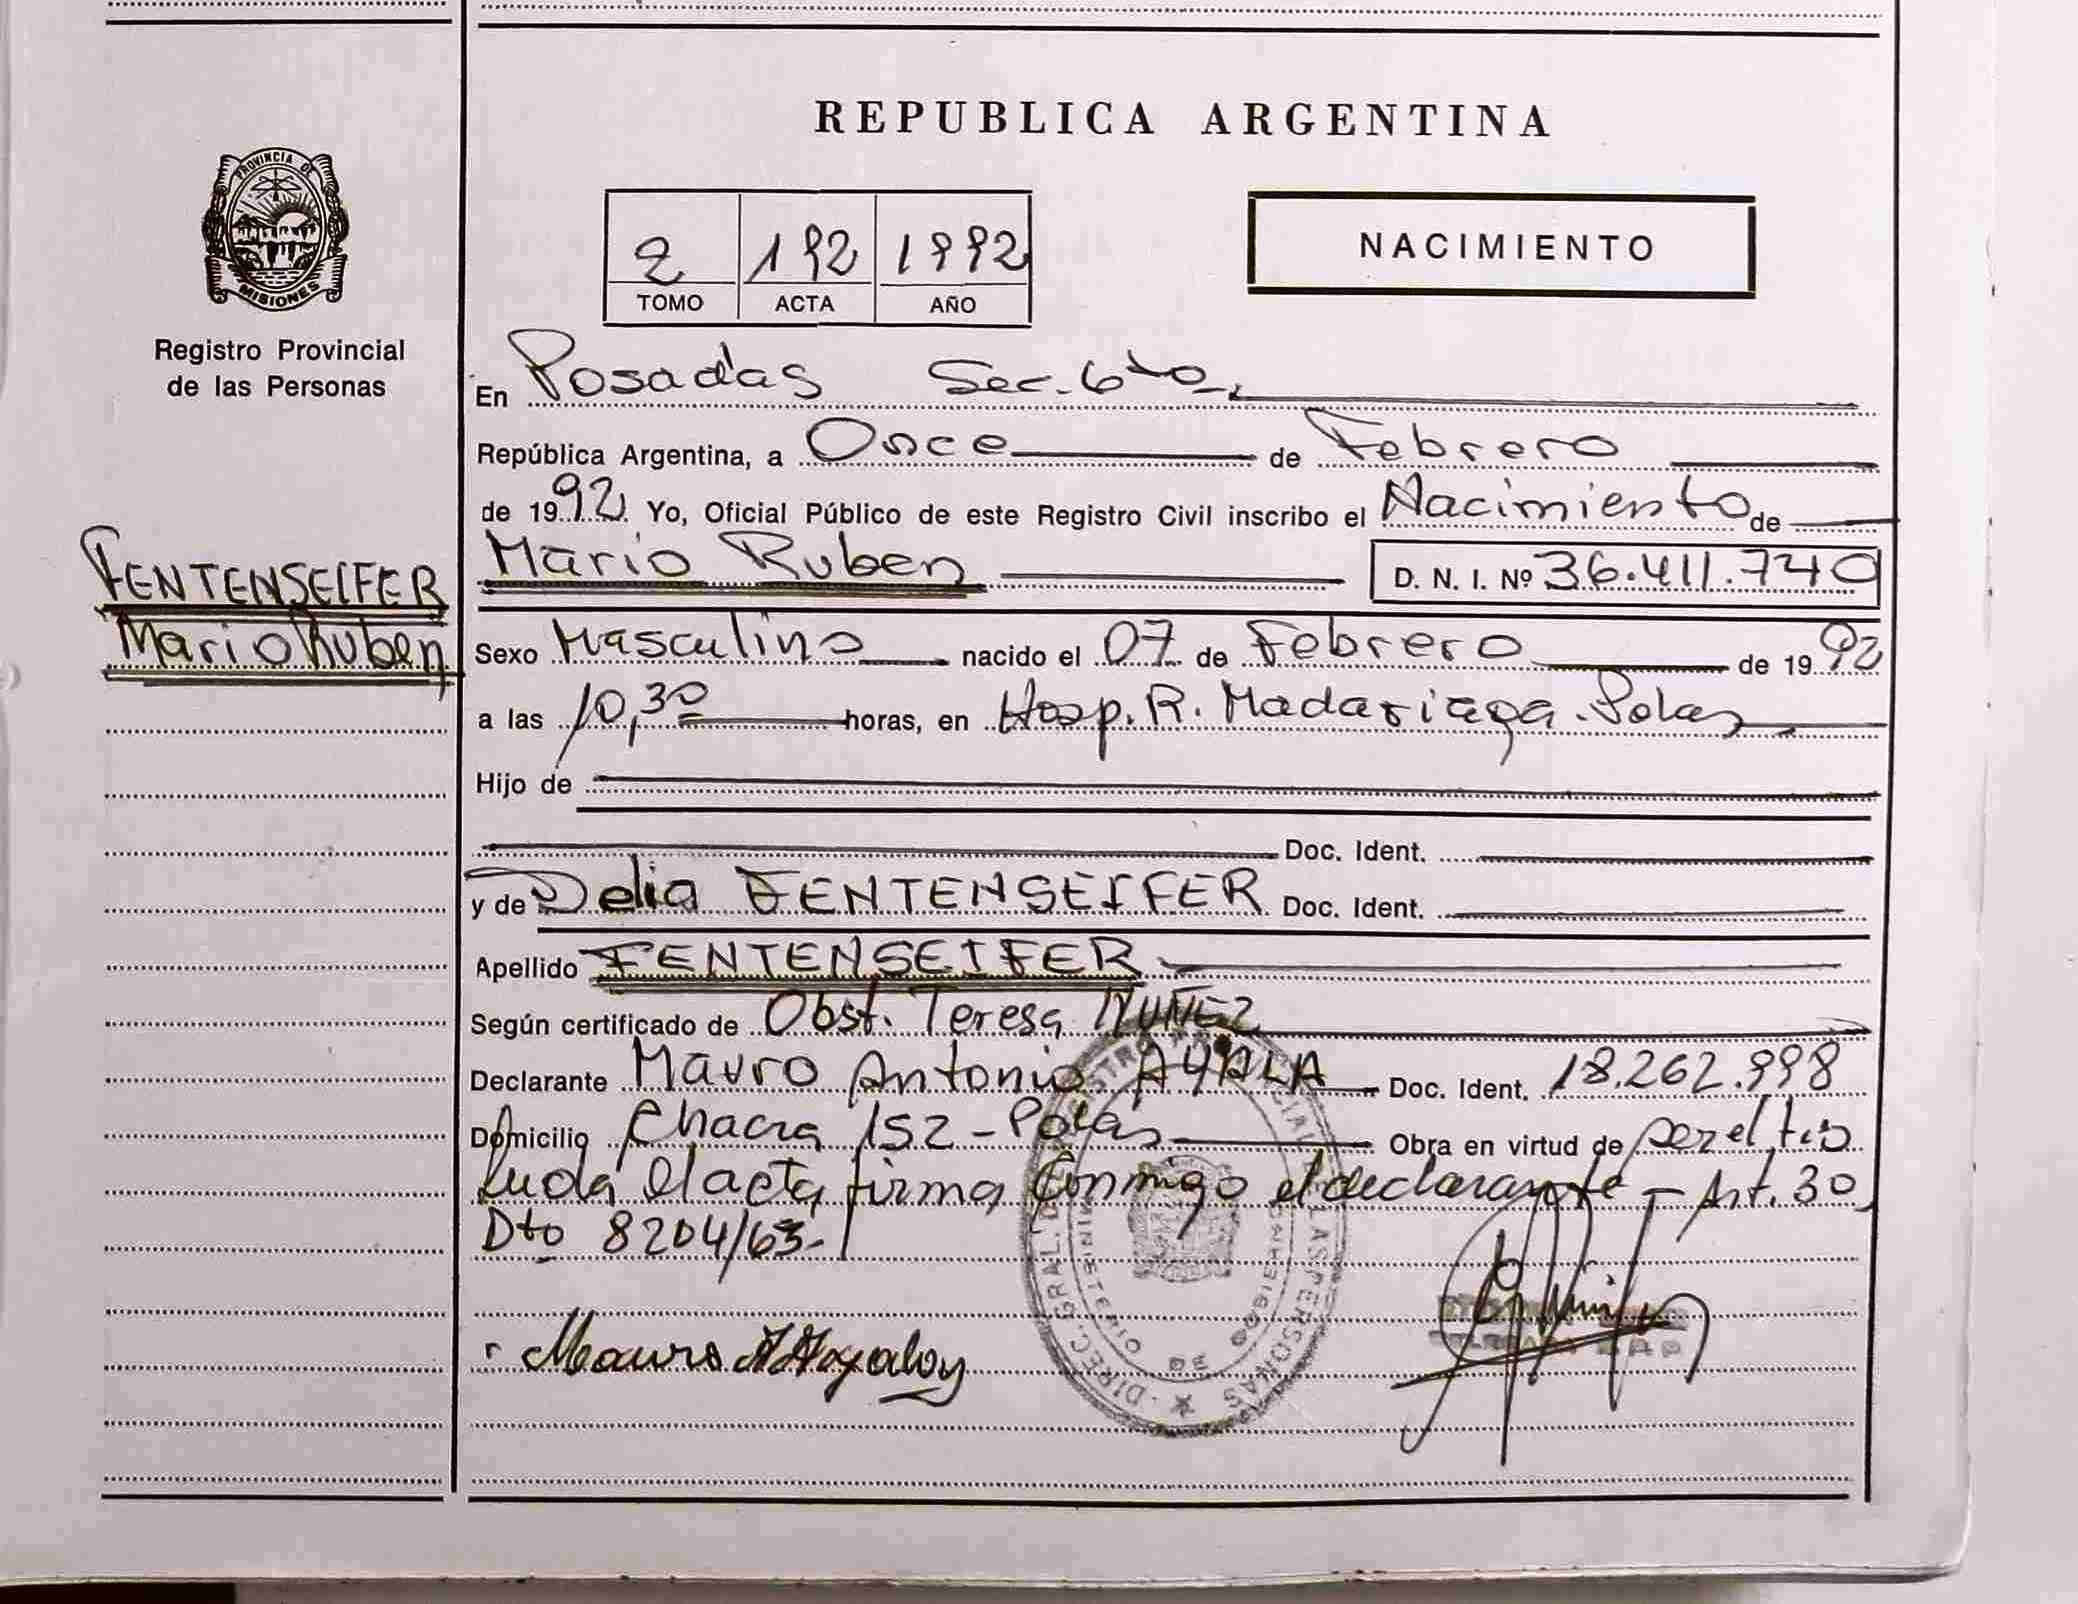 REPUBLICA ARGENTINA
PROVINCIA DE
MISIONES
Registro Provincial
de las Personas
2 192 1992
TOMO ACTA AÑO
NACIMIENTO
En Posadas Sec. 6to.
República Argentina, a Once de Febrero
de 1992 Yo, Oficial Público de este Registro Civil inscribo el Nacimiento de
FENTENSEIFER
Mario Ruben
Mario Ruben D. N. I. Nº 36.411.740
Sexo Masculino nacido el 07 de Febrero de 1992
a las 10,30 horas, en Hosp. R. Madariaga. Pdas
Hijo de
Doc. Ident.
y de Delia FENTENSEIFER Doc. Ident.
Apellido FENTENSEIFER
Según certificado de Obst. Teresa NUÑEZ
Declarante Mauro Antonio AYALA Doc. Ident. 18.262.998
Domicilio Chacra 152 - Pdas Obra en virtud de
el acta firma conmigo el declarante - Art. 30
Dto 8204/63-
Mauro A Ayala
DIREC. GRAL. DE REGISTRO PROVINCIAL DE LAS PERSONAS
MINISTERIO DE GOBIERNO